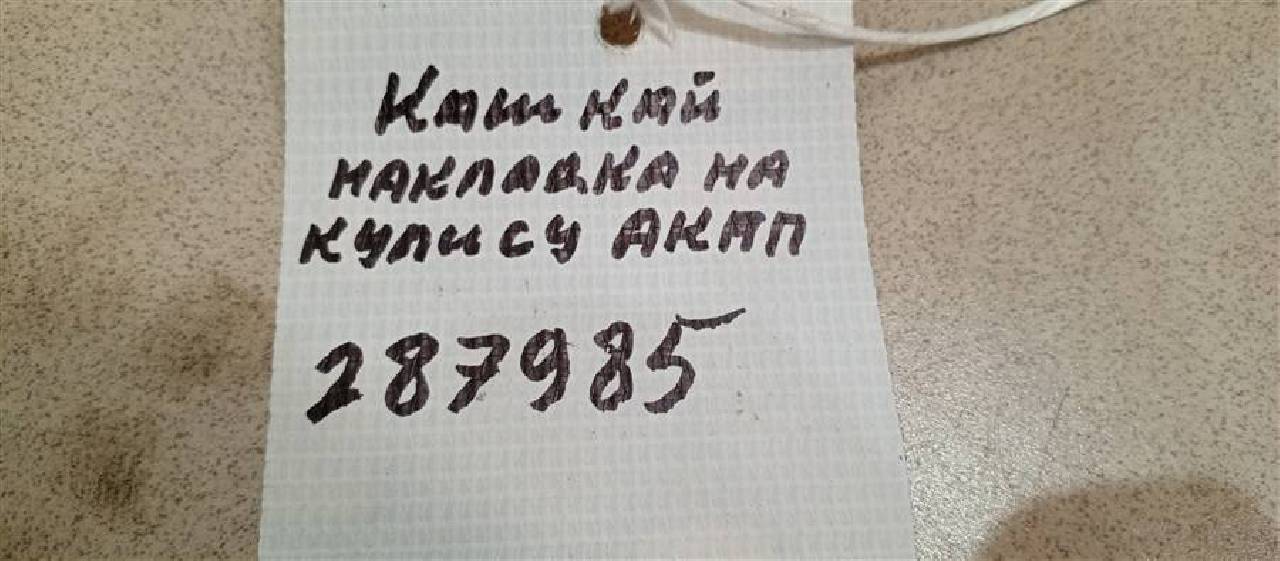 Кашкай
накладка на
кулису АКПП
287985